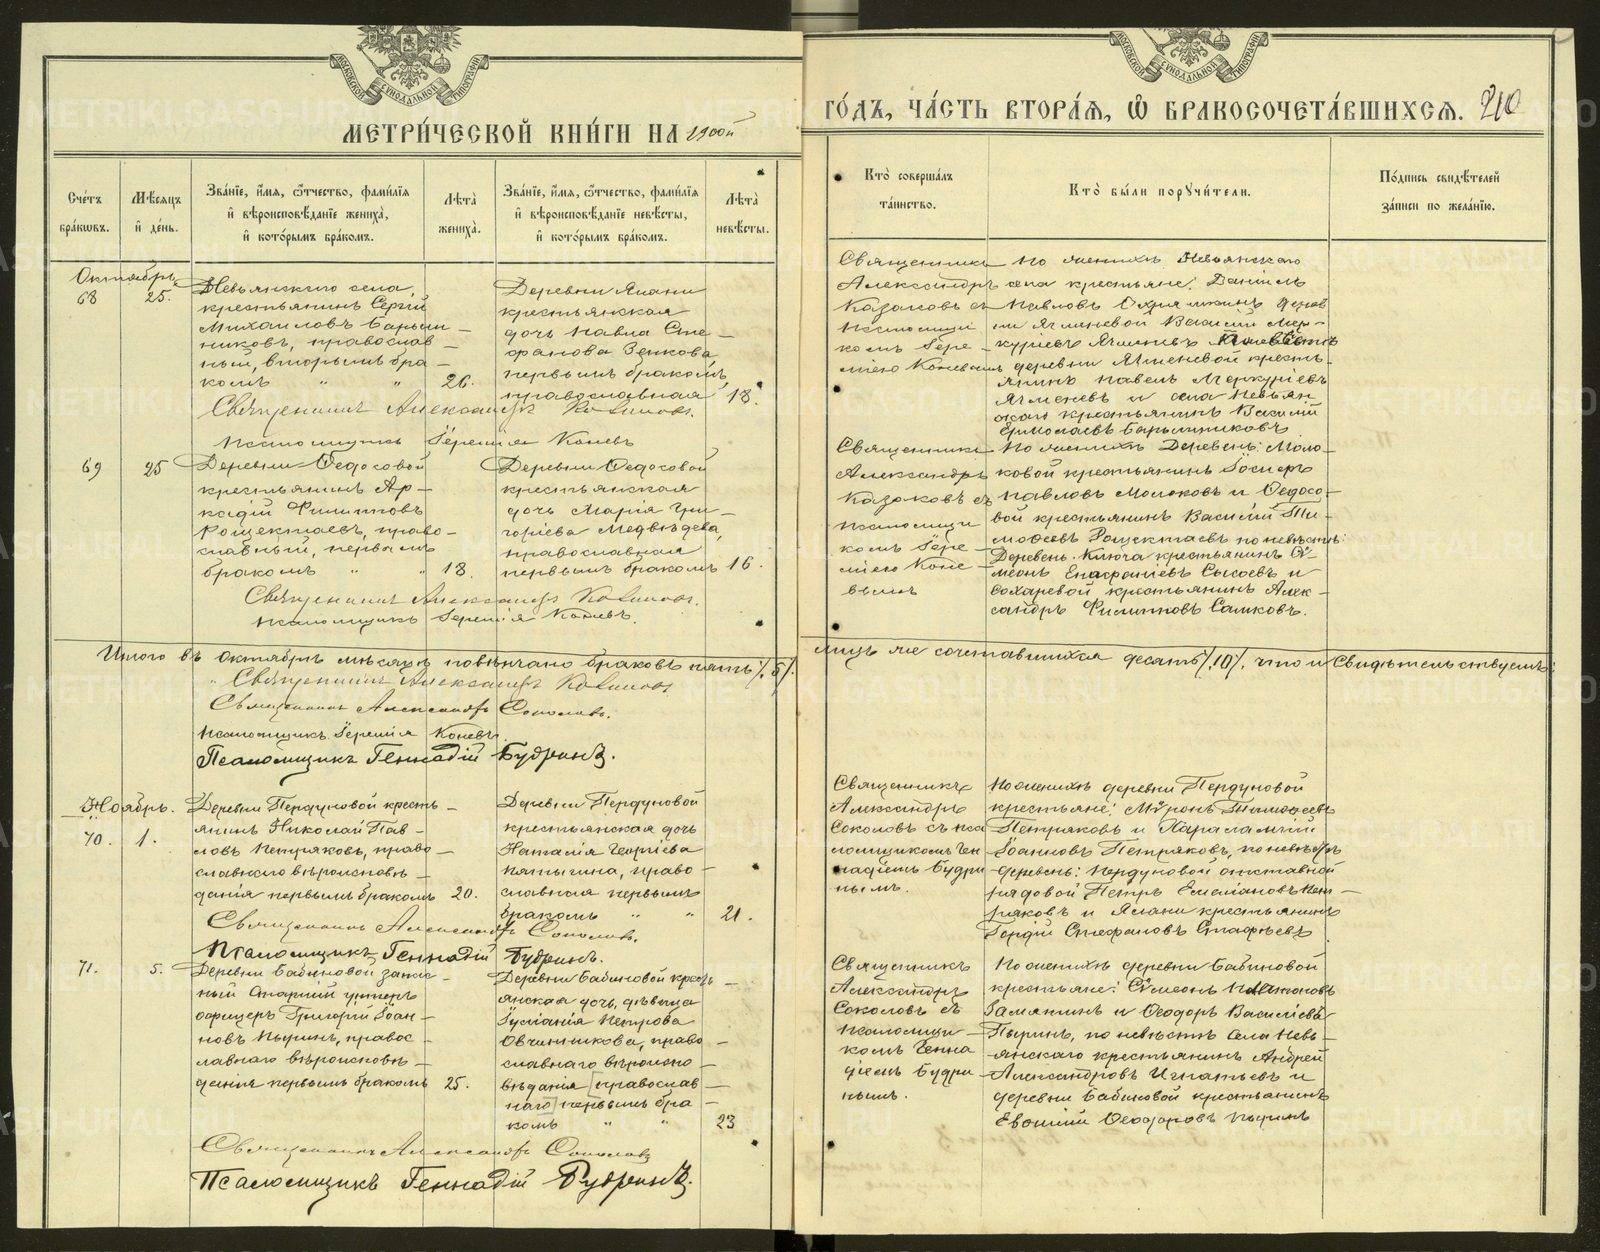 МЕТРИ́ЧЕСКОЙ КНИ́ГИ НА 1900й
ГО́ДЪ, ЧА́СТЬ ВТОРА́Я, Ѿ БРАКОСОЧЕТА́ВШИХСЯ. 210
Сче́тъ бра́кѡвъ.
Мѣ́сяцъ и҆ де́нь.
Зва́нїе, и҆́мя, ѻ҆́тчество, фами́лїя и҆ вѣроисповѣ́данїе жениха̀, и҆ кото́рымъ бра́комъ.
Лѣ́та жениха̀.
Зва́нїе, и҆́мя, ѻ҆́тчество, фами́лїя и҆ вѣроисповѣ́данїе невѣ́сты, и҆ кото́рымъ бра́комъ.
Лѣ́та невѣ́сты.
Кто̀ соверша́лъ та́инство.
Кто̀ бы́ли порꙋчи́тели.
По́дпись свидѣ́телей за́писи по жела́нїю.
Октябрь
68
25.
Невьянскаго села
крестьянинъ Сергій
Михаиловъ Барыш-
никовъ, православ-
ный, вторымъ бра-
комъ " "
26.
Деревни Ялани
крестьянская
дочь Павла Сте-
фанова Зенкова,
первымъ бракомъ,
православная
18.
Священникъ
Александръ
Казаковъ съ
псаломщи-
комъ Іере-
міею Коневымъ
По женихѣ Невьянскаго
села крестьяне: Даніилъ
Павловъ
деревни Ячменевой Василій Мер-
куріевъ Ячменевъ
деревни Ячменевой кресть-
янинъ Павелъ Меркуріевъ
Ячменевъ и села Невьян
скаго крестьянинъ Василій
Ермолаевъ Барышниковъ
Священникъ Александръ Казаковъ.
Псаломщикъ Іеремія Коневъ
69
25
Деревни Ѳедосовой
крестьянинъ Ар-
кадій Филипповъ
Рощектаевъ, право-
славный, первымъ
бракомъ " "
18.
Деревни Ѳедосовой
крестьянская
дочь Марія Гри-
горіева Медвѣдева,
православная
первымъ бракомъ
16.
Священникъ
Александръ
Казаковъ съ
псаломщи-
комъ Іере-
міею Коне-
вымъ
По женихѣ Деревень: Моло-
ковой крестьянинъ Іосифъ
Павловъ Молоковъ и Ѳедосо-
вой крестьянинъ Василій Ти-
моѳеевъ Рощектаевъ по невѣстѣ:
Деревень: Ключа крестьянинъ Сѵ-
меонъ Епифаніевъ Сысоевъ и
Сохаревой крестьянинъ Алек-
сандръ Филипповъ Самковъ.
Священникъ Александръ Казаковъ.
Псаломщикъ Іеремія Коневъ.
Итого въ Октябрѣ мѣсяцѣ повѣнчано браковъ пять /5/.
лицъ же сочетавшихся десять /10/, что и свидѣтельствуемъ:
Священникъ Александръ Казаковъ
Священникъ Александръ Соколовъ.
Псаломщикъ Іеремія Коневъ
Псаломщикъ Геннадій Будринъ.
Ноябрь.
70.
1.
Деревни Пердуновой кресть-
янинъ Николай Пав-
ловъ Петряковъ, право-
славнаго вѣроисповѣ-
данія первымъ бракомъ
20.
Деревни Пердуновой
крестьянская дочь
Наталія Георгіева
Пятыгина, право-
славная первымъ
бракомъ " "
21.
Священникъ
Александръ
Соколовъ съ пса
ломщикомъ Ген
надіемъ Будри
нымъ.
По женихѣ деревни Пердуновой
крестьяне: Мѵронъ Тимоѳеевъ
Петряковъ и Харалампій
Іоанновъ Петряковъ, по невѣстѣ
деревень: Пердуновой отставной
рядовой Петръ Емеліановъ Пет-
ряковъ и Ялани крестьянинъ
Гордій Стефановъ Стафѣевъ
Священникъ Александръ Соколовъ.
Псаломщикъ Геннадій Будринъ.
71.
5.
Деревни Бабиновой запас-
ный старшій унтеръ
офицеръ Григорій Іоан-
новъ Пыринъ, правос-
лавнаго вѣроисповѣ-
данія первымъ бракомъ
25.
Деревни Бабиновой кресть-
янская дочь, дѣвица
Іуліанія Петрова
Овчинникова, право-
славнаго вѣроиспо-
вѣданія [православ-
наго] первымъ бра-
комъ " "
23
Священникъ
Александръ
Соколовъ съ
псаломщи-
комъ Генна
діемъ Будри-
нымъ.
По женихѣ деревни Бабиновой
крестьяне: Сѵмеонъ Платоновъ
Замятинъ и Ѳеодоръ Василіевъ
Пыринъ, по невѣстѣ села Невь-
янскаго крестьянинъ Андрей
Александровъ Игнатьевъ и
деревни Бабиновой крестьянинъ
Евѳимій Ѳеодоровъ Пыринъ
Священникъ Александръ Соколовъ
Псаломщикъ Геннадій Будринъ.